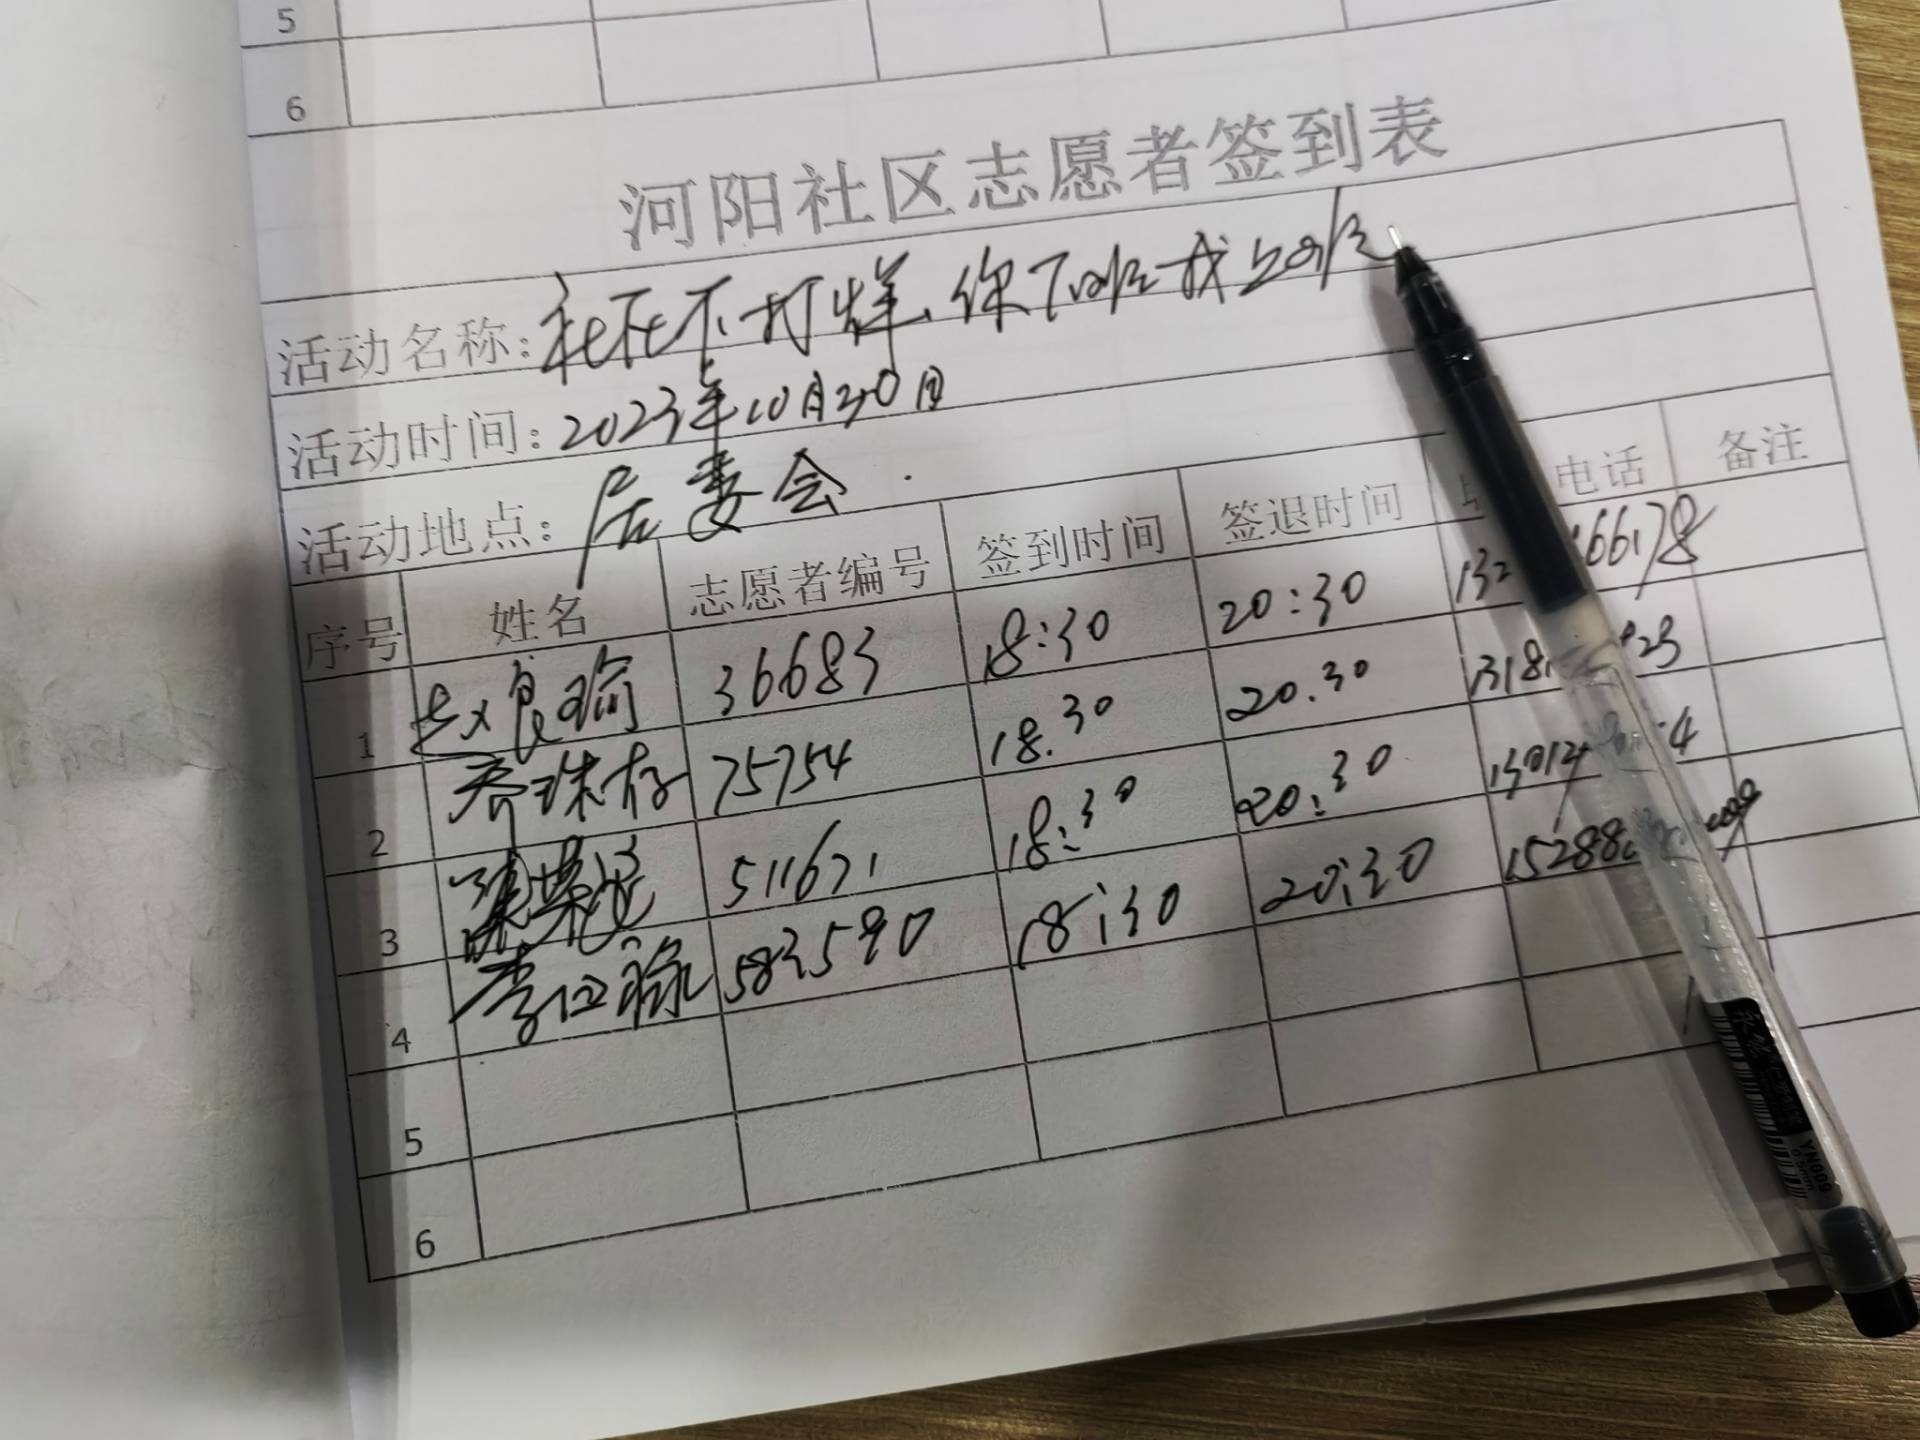 5
6
河阳社区志愿者签到表
活动名称:社区不打烊、你下班我上班
活动时间:2023年10月30日
活动地点:居委会
序号 姓名 志愿者编号 签到时间 签退时间 电话 备注
1 赵良瑜 36683 18:30 20:30 132 66178
2 乔珠存 75754 18.30 20.30 1318 23
3 511671 18:30 20:30 13012 4
4 583590 18:30 20:30 15288
5
6
YN009
0.5mm